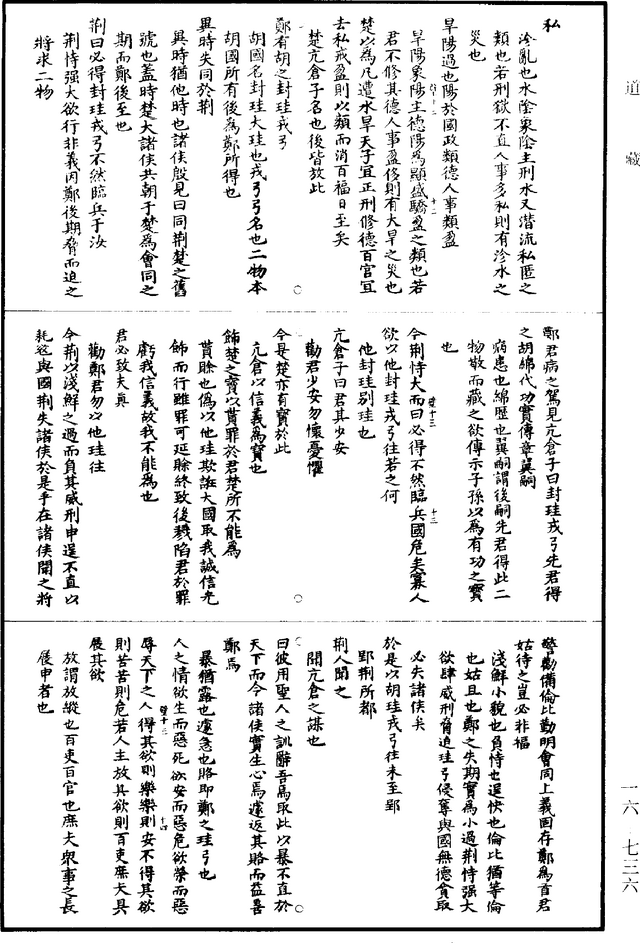 道藏
私
沴亂也水陰象陰主刑水又潛流私匿之
類也若刑獄不直人事多私則有沴水之
災也
旱陽過也陽於國政類德人事類盈
旱陽象陽主德陽為顯盛驕盈之類也若
君不修其德人事盈侈則有大旱之災也
楚以為凡遭水旱天子宜正刑修德百官宜
去私戒盈則以類而消百福日至矣
楚亢倉子名也後皆放此
鄭有胡之封珪戎弓
胡國名封珪大珪也戎弓弓名也二物本
胡國所有後為鄭所得也
異時失同於荊
異時猶他時也諸侯殷見曰同荊楚之舊
號也蓋時楚大諸侯共朝于楚為會同之
期而鄭後至也
荊曰必得封珪戎弓不然臨兵于汝
荊恃强大欲行非義因鄭後期脅而追之
將求二物
鄭君病之駕見亢倉子曰封珪戎弓先君得
之胡綿代功實傳章翼嗣
病患也綿歷也翼嗣謂後嗣先君得此二
物散而藏之欲傳示子孫以為有功之寶
也
今荊恃大而曰必得不然臨兵國危矣寡人
欲以他封珪戎弓往若之何
他封珪別珪也
亢倉子曰君其少安
勸君少安勿懷憂懼
今是楚亦有寶於此
亢倉以信義為寶也
飾楚之寶以貰罪於君楚所不能為
貰賒也偽以他珪欺誑大國取我誠信光
飾而行雖罪可延賒終致後戮陷君於罪
虧我信義故我不能為也
君必致夫真
勸鄭君勿以他珪往
今荊以淺鮮之過而負其威刑申逞不直以
耗恣與國荊失諸侯於是乎在諸侯聞之將
警勸備倫比勤明會同上義固存鄭為首君
姑待之豈必非福
淺鮮小貌也負恃也逞快也倫比猶等倫
也姑且也鄭之失期實為小過荊恃强大
欲肆威刑脅追珪弓侵奪與國無德貪取
必失諸侯矣
於是以胡珪戎弓往未至郢
郢荊所都
荊人聞之
聞亢倉之謀也
曰彼用聖人之訓辭吾為取此以暴不直於
天下而今諸侯實生心焉遽返其賂而益善
鄭焉
暴猶露也遽急也賂即鄭之珪弓也
人之情欲生而惡死欲安而惡危欲榮而惡
辱天下之人得其欲則樂樂則安不得其欲
則苦苦則危若人主放其欲則百吏庶夫具
展其欲
放謂放縱也百吏百官也庶夫眾事之長
展申者也
一六·七三六